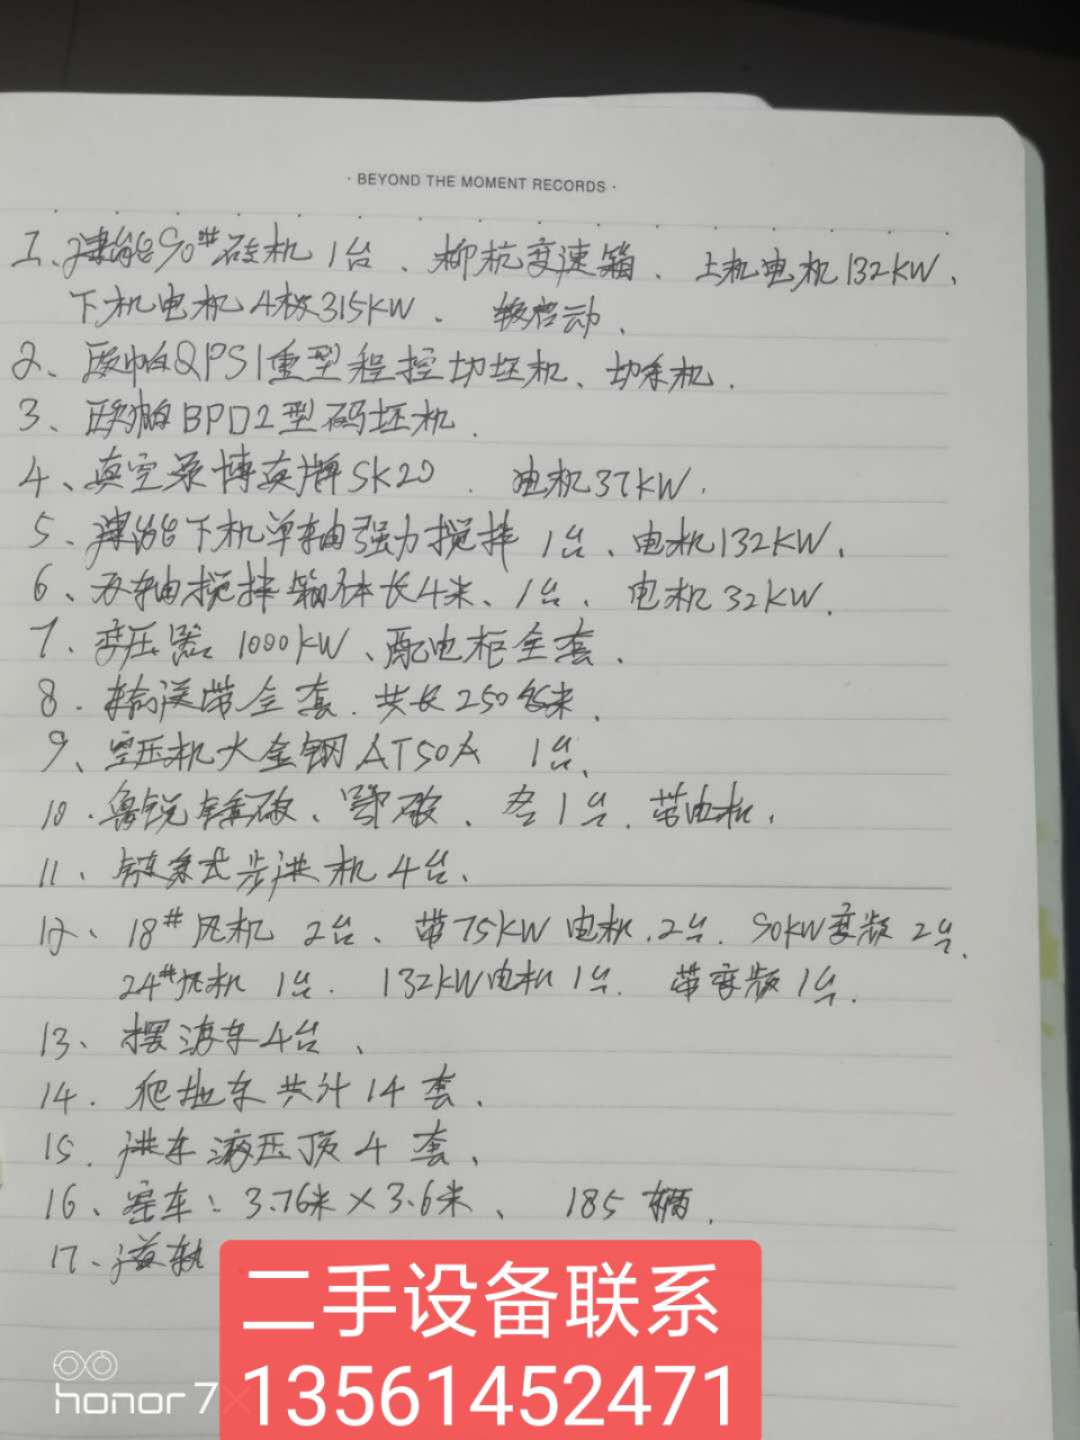 · BEYOND THE MOMENT RECORDS ·
1、建能90#砖机1台、柳杭变速箱、上机电机132KW、
下机电机4极315KW. 软启动.
2、欧帕QPS1重型程控切坯机、切条机.
3、欧帕BPD2型码坯机.
4、真空泵博英牌SK20. 电机37KW.
5、建能下机单轴强力搅拌1台、电机132KW.
6、双轴搅拌箱体长4米、1台、电机32KW.
7、变压器1000KW、配电柜全套.
8. 输送带全套. 共长250多米.
9、空压机大金钢AT50A 1台、
10. 鲁锐锤破、鄂破、各1台. 带电机.
11、链条式步进机4台、
12、18#风机 2台、带75KW电机.2台. 90KW变频2台.
24#风机 1台. 132KW电机1台. 带变频1台.
13、摆渡车4台、
14. 爬拉车共计14套.
15. 进车液压顶4套、
16、窑车: 3.76米×3.6米、 185辆.
17、道轨
二手设备联系
13561452471
honor 7X